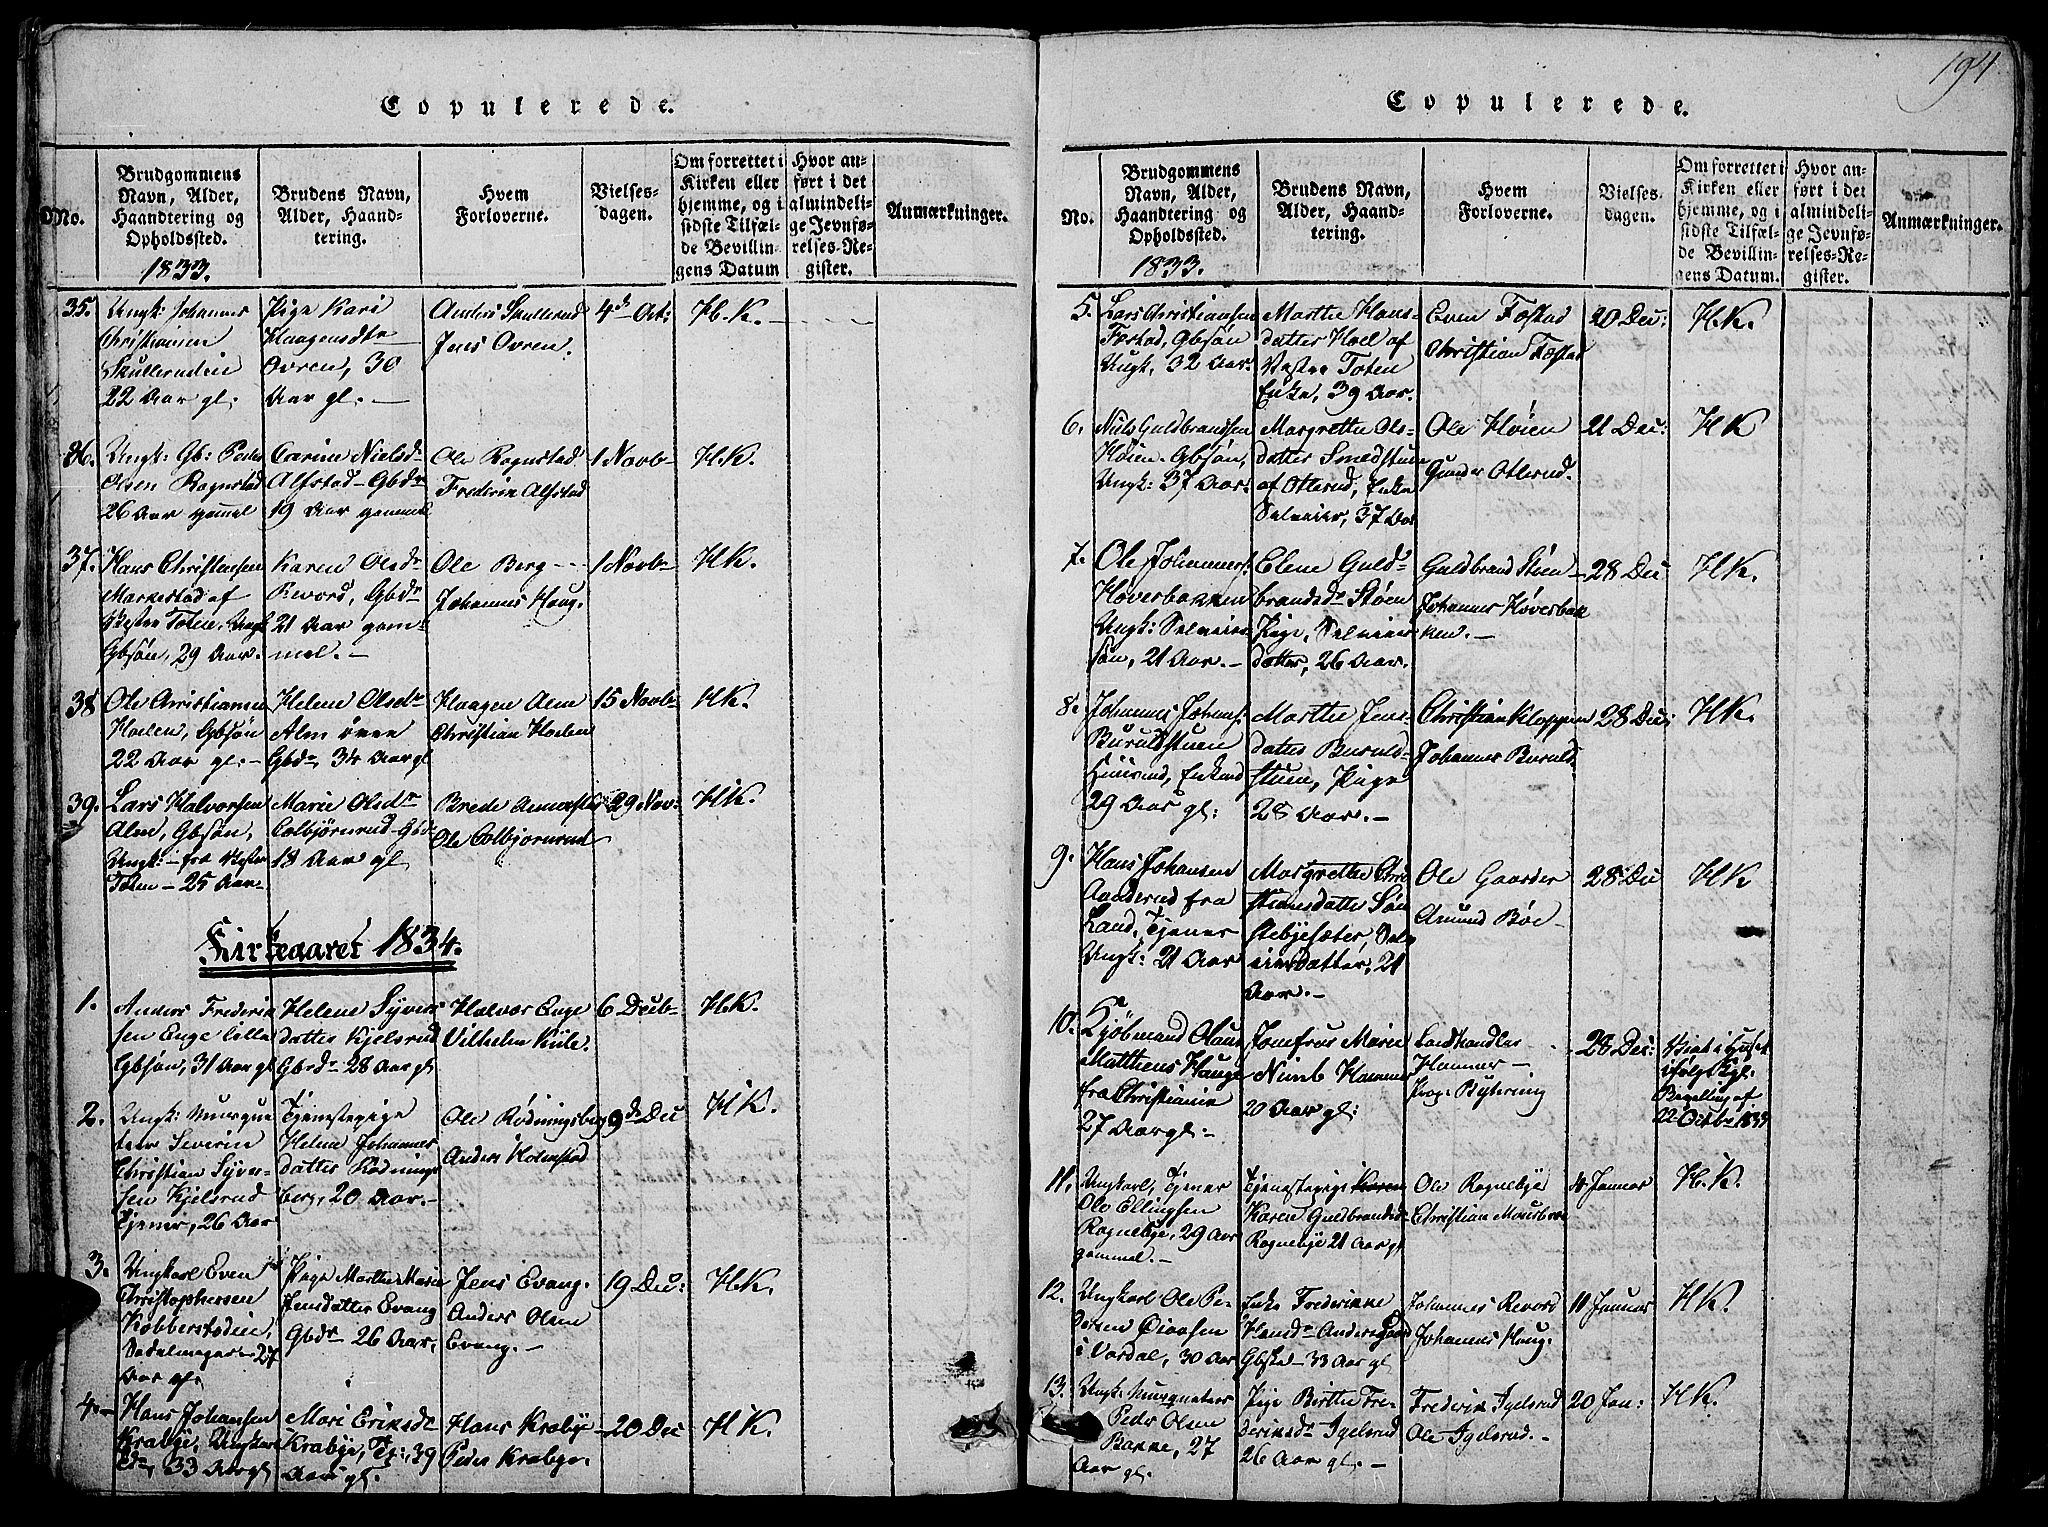 Copulerede.
No.
Brudgommens
Navn, Alder,
Haandtering og
Opholdssted.
1833.
Brudens Navn,
Alder, Haand-
tering.
Hvem
Forloverne.
Vielses-
dagen.
Om forrettet i
Kirken eller
hjemme, og i
sidste Tilfæl-
de Bevillin-
gens Datum
Hvor an-
ført i det
almindeli-
ge Jevnfø-
relses-Re-
gister.
Anmærkninger.
35.
Ungk: Johannes
Christiansen
Skullerudeie
22 Aar gl.
Pige Kari
Haagensdtr
Ovren, 30
Aar gl. —
Anders Skullerud
Jens Ovren.
4de Oct:
H.K.
36.
Ungk: Gb: Peder
Olsen Rognstad
26 Aar gammel
Carine Nielsd
Alfstad Gbdr
19 Aar gammel
Ole Rognstad
Frederik Alfstad
1 Novb
H.K.
37.
Hans Christensen
Markestad af
Vestre Toten, Ungk
Gbsøn, 29 Aar.
Karen Olsdr
Revord, Gbdr
21 Aar gam-
mel. —
Ole Berg
Johannes Haug.
1 Novb
H.K.
38
Ole Christiansen
Hoelen, Gbsøn
22 Aar gl: —
Helene Olsdr
Alm øvre
Gbdr, 34 Aar gl
Haagen Alm
Christian Hoelen
15 Novb
H.K.
39.
Lars Halvorsen
Alm, Gbsøn,
Ungk: — fra Vestre
Toten — 25 Aar
Marie Olsdr
Colbjørnrud Gbd
18 Aar gl
Brede
Ole Colbjørnrud
29 Nov:
H.K.
Kirkeaaret 1834.
1.
Anders Frederik
sen Enge lille
Gbsøn, 31 Aar gl
Helene Syvers
datter Kjelsrud
Gbdr 28 Aar gl
Halvor Enge
Vilhelm Kiile.
6 Decb
H.K.
2.
Ungk: Musque
teer Severin
Christian Syver-
sen Kjelsrud
Tjener, 26 Aar
Tjenestepige
Helene Johannes
datter Rødnings
berg, 20 Aar. —
Ole Rødningsberg
Anders Holmstad
9de Dec
H.K.
3.
Ungkarl Even
Christophersen
Kobberstadeie,
Sadelmager 27
Aar gl.
Pige Marthe Marie
Jensdatter Evang
Gbdr 26 Aar.
Jens Evang.
Anders Olsen
Evang. —
19 Dec:
H.K.
4. —
Hans Johansen
Krabye, Ungkarl
33 Aar gl
Mari Eriksdr
Krabye, Tj:, 39
Aar gl.
Hans Krabye
Peder Krabye.
20 Dec
H.K.
194
Copulerede.
No.
Brudgommens
Navn, Alder,
Haandtering og
Opholdssted.
1833.
Brudens Navn,
Alder, Haand-
tering.
Hvem
Forloverne.
Vielses-
dagen.
Om forrettet i
Kirken eller
hjemme, og i
sidste Tilfæl-
de Bevillin-
gens Datum.
Hvor an-
ført i det
almindeli-
ge Jevnfø-
relses-Re-
gister.
Anmærkninger.
5.
Lars Christiansen
Fæstad, Gbsøn
Ungk, 32 Aar.
Marthe Hans-
datter Hoel af
Vestre Toten
Enke, 39 Aar.
Even Fæstad
Christian Fæstad
20 Dec:
H.K.
6.
Niels Guldbrandsen
Høien, Gbsøn,
Ungk: 37 Aar.
Margrethe Ols-
datter Smedstuen
af Ottersud, Enke
Selveier, 37 Aar
Ole Høien
Gunder Otterud.
21 Dec:
H.K.
7.
Ole Johannes:
Høverbakken
Ungk: Selveier
søn, 21 Aar. —
Elene Guld-
brandsdr Støen
Pige, Selveier
datter, 26 Aar.
Guldbrand Støen
Johannes Høverbak
ken. —
28 Dec
H.K.
8.
Johannes Johans:
Buruldstuen
Enkemd
29 Aar gl:
Marthe Jens-
datter Buruld-
stuen, Pige
28 Aar. —
Christian Kloppen
Johannes Buruld
28 Dec:
H.K.
9.
Hans Johansen
Aanderud fra
Land, Tjener
Ungk: 21 Aar
Margrethe Chri
stiansdatter Søn
stebysæter, Sel
veierdatter, 21
Aar. —
Ole Gaarder
Amund Bøe
28 Dec
H.K.
10.
Kjøbmand Olaus
Mattheus Hauge
fra Christiania
27 Aar gl: —
Jomfrue Marie
Nimb Hammer
20 Aar gl:
Landhandler
Hammer —
Prop: Byhring
28 Dec:
Viet i Huset
ifølge Kgl:
Bevilling af
22 Octbr 1833
11.
Ungkarl, Tjener
Ole Ellingsen
Rognebye, 29 Aar
gammel. —
Tjenestepige Karen
Karen Guldbrandsd
Rognebye 21 Aar gl
Ole Rognebye
Christian
4 Januar
H.K.
12.
Ungkarl Ole Pe-
dersen
i Vardal, 30 Aar
Enke Frederikke
Hansdr
33 Aar gl
Johannes Revord
Johannes Haug.
11 Januar
H.K.
13.
Ungk: Musqueteer
Peder Olsen
Bakke, 27
Aar gl.
Pige Birthe Fre-
deriksdr Igelsrud
26 Aar gl. —
Frederik Igelsrud
Ole Igelsrud. —
20 Jan:
H.K.